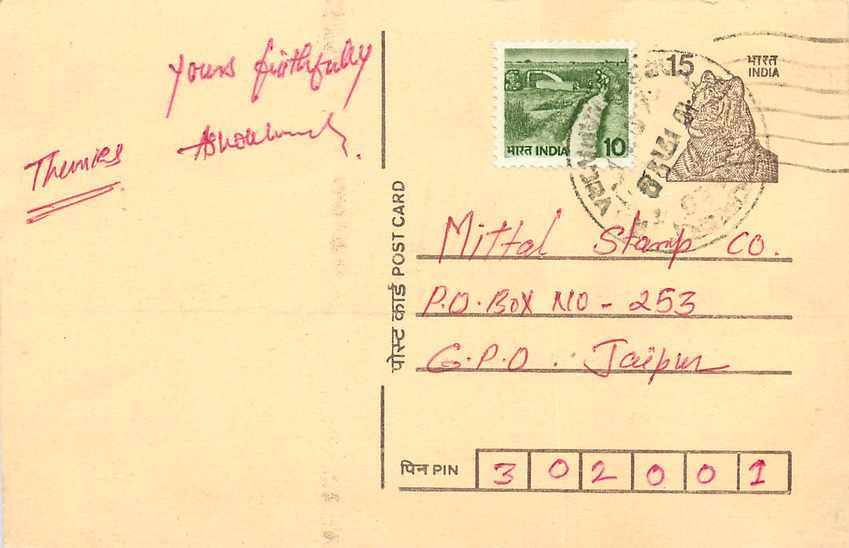 Yours fiathfully
Thankes
भारत INDIA 10
15
भारत
INDIA
पोस्ट कार्ड POST CARD
Mittal Stamp CO.
P.O. BOX NO - 253
G.P.O. Jaipur
पिन PIN 302001